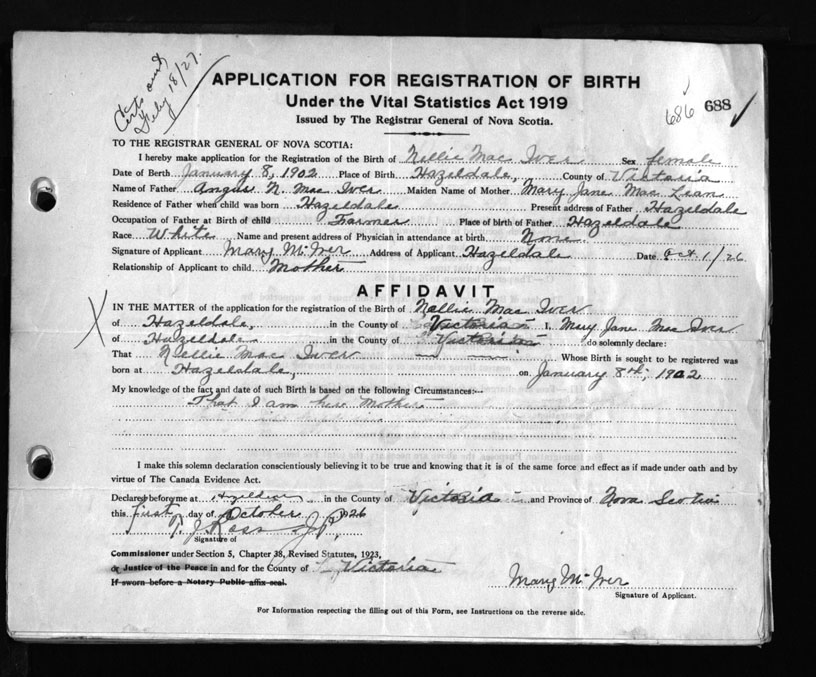 Certs out
Feby 18/27.
APPLICATION FOR REGISTRATION OF BIRTH
Under the Vital Statistics Act 1919
Issued by The Registrar General of Nova Scotia.
686 688
TO THE REGISTRAR GENERAL OF NOVA SCOTIA:
I hereby make application for the Registration of the Birth of Nellie Mac Iver Sex female
Date of Birth January 8, 1902 Place of Birth Hazeldale, County of Victoria
Name of Father Angus N. Mac Iver Maiden Name of Mother Mary Jane Mac Lean
Residence of Father when child was born Hazeldale Present address of Father Hazeldale
Occupation of Father at Birth of child Farmer Place of birth of Father Hazeldale
Race White Name and present address of Physician in attendance at birth None
Signature of Applicant Mary McIver Address of Applicant Hazeldale Date Oct 1/26
Relationship of Applicant to child Mother
AFFIDAVIT
IN THE MATTER of the application for the registration of the Birth of Nellie Mac Iver
of Hazeldale, in the County of Victoria I, Mary Jane Mac Iver
of Hazeldale in the County of Victoria do solemnly declare:
That Nellie Mac Iver Whose Birth is sought to be registered was
born at Hazeldale, on January 8th, 1902
My knowledge of the fact and date of such Birth is based on the following Circumstances:—
That I am her Mother
I make this solemn declaration conscientiously believing it to be true and knowing that it is of the same force and effect as if made under oath and by
virtue of The Canada Evidence Act.
Declared before me at Hazeldale in the County of Victoria and Province of Nova Scotia
this first day of October 1926
J Ross J.P.
Signature of
Commissioner under Section 5, Chapter 38, Revised Statutes, 1923,
or Justice of the Peace in and for the County of Victoria
If sworn before a Notary Public affix seal.
Mary McIver
Signature of Applicant.
For Information respecting the filling out of this Form, see Instructions on the reverse side.